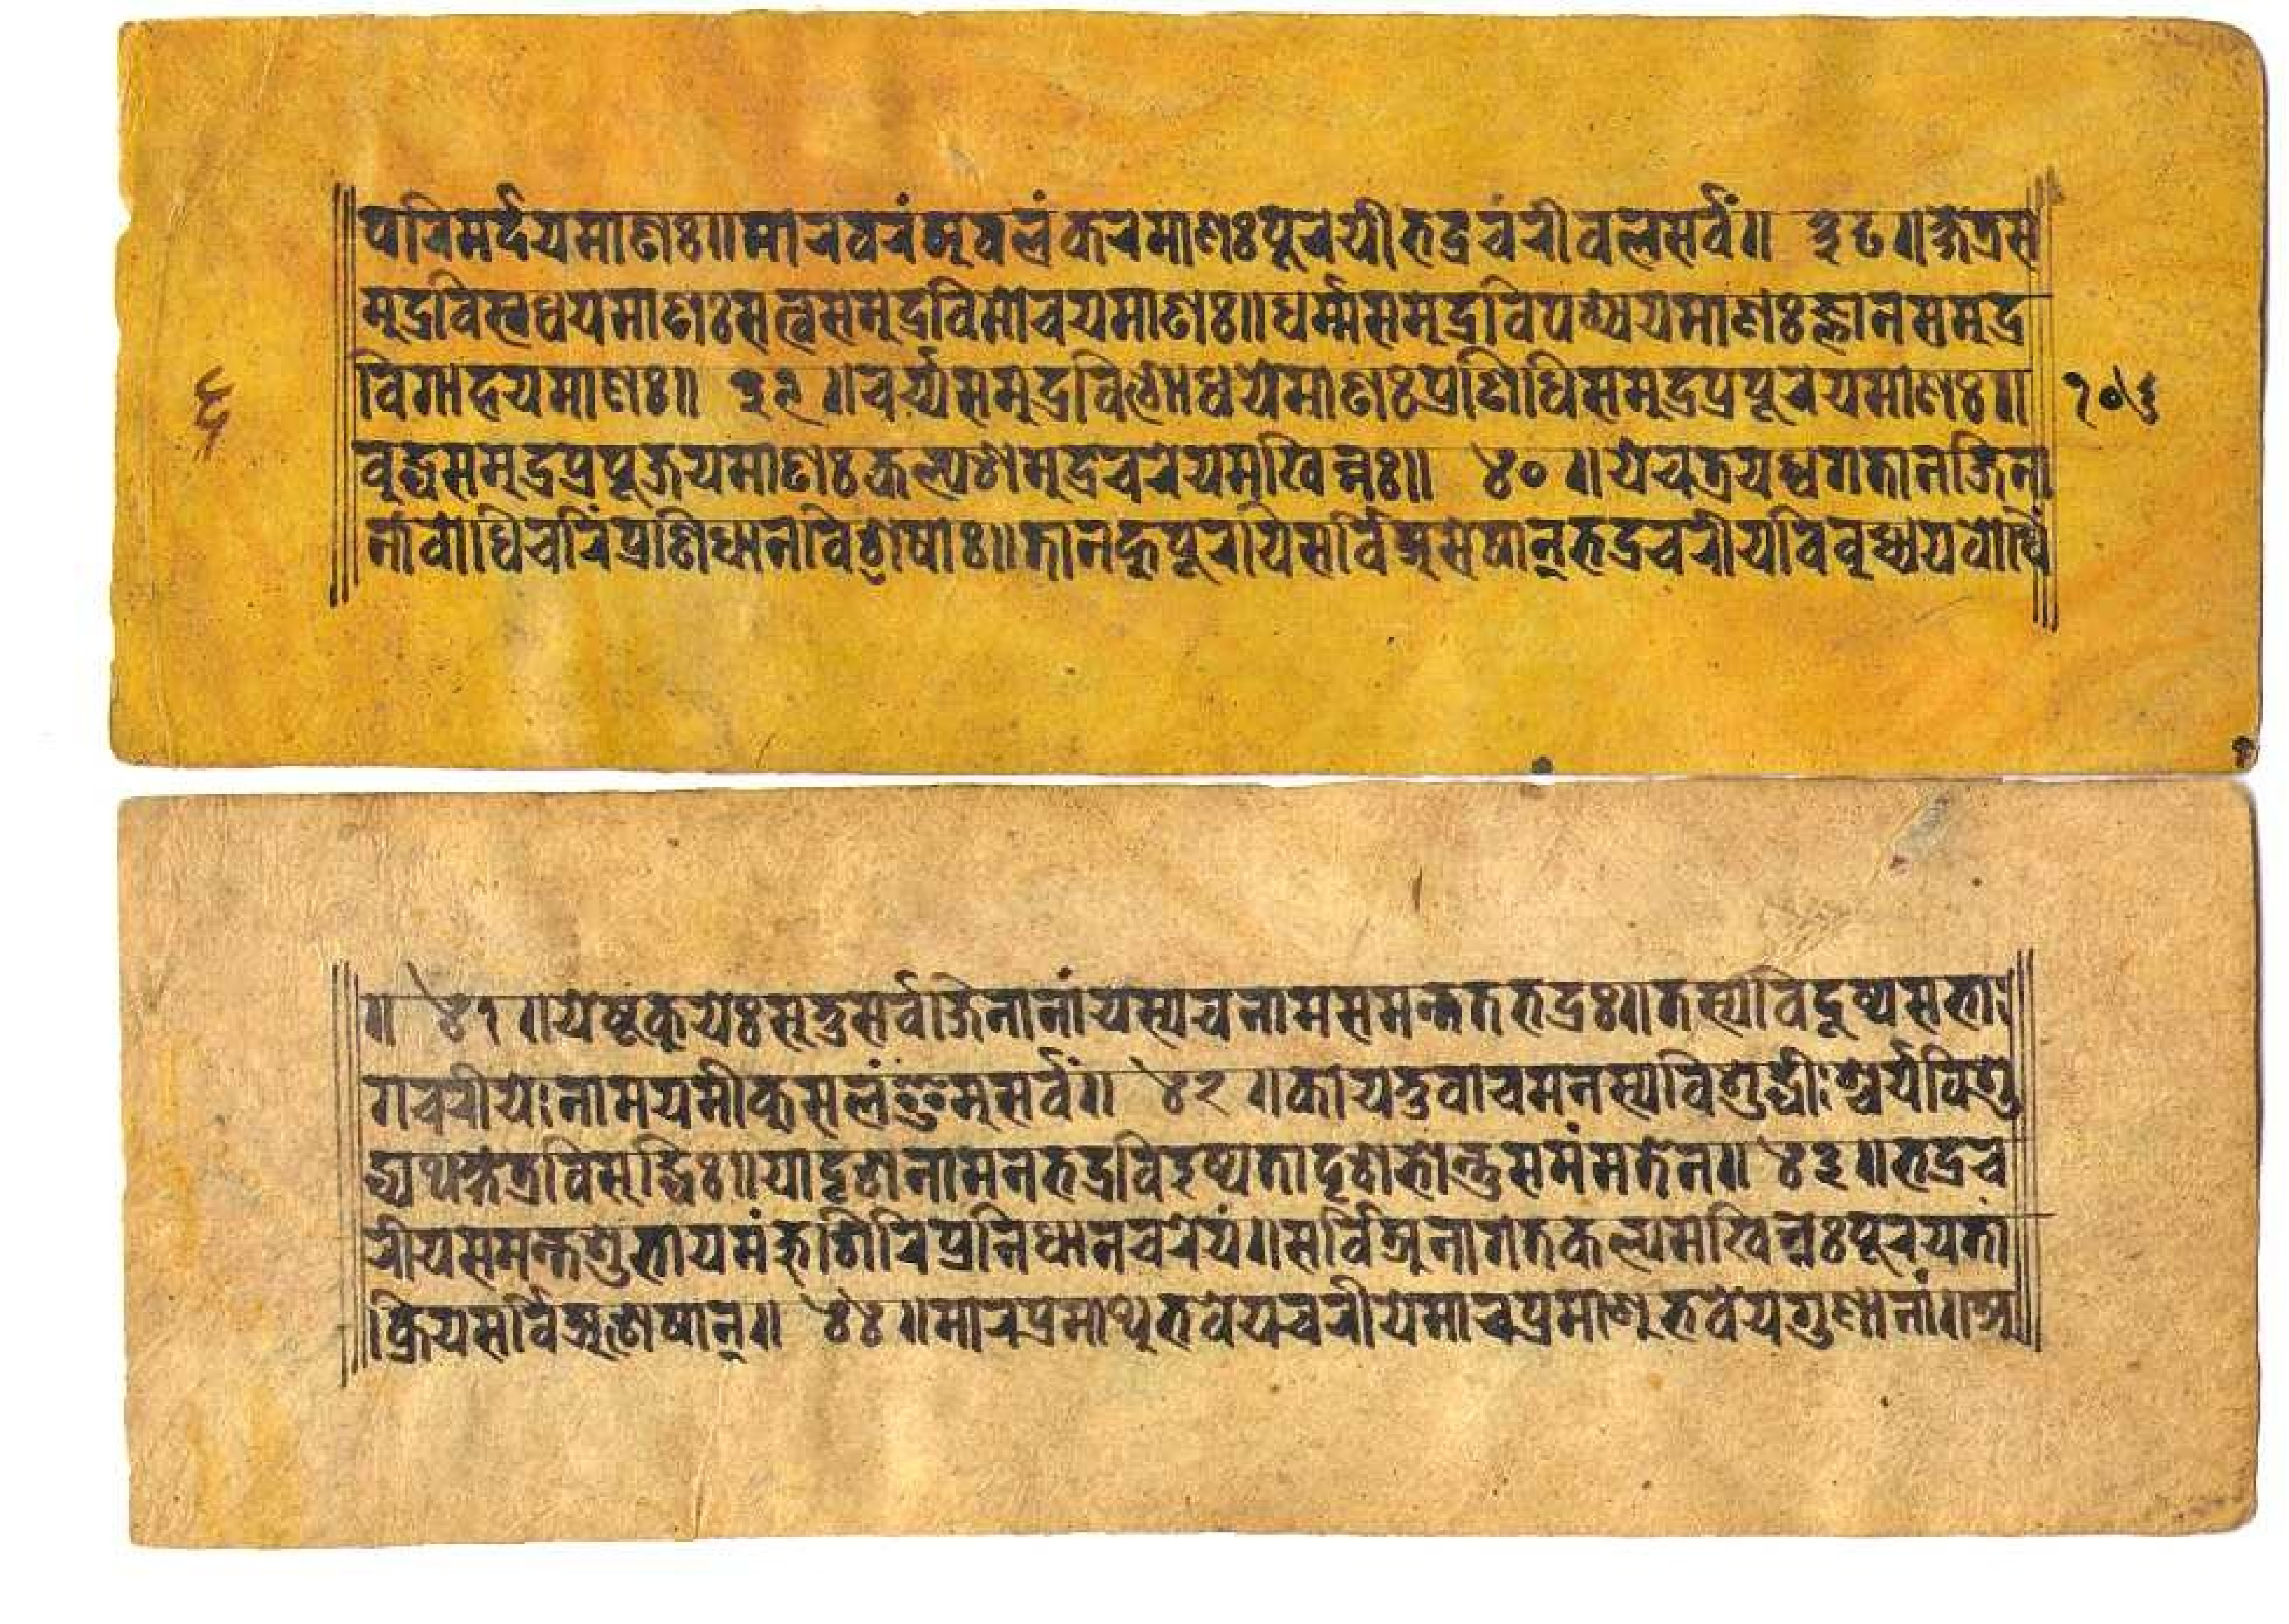 परिमर्दयमाणः॥मारवरंअवलंकरमाणःपूरयीभद्रचरीवलसर्वं॥ ३८॥क्षेत्रस
मुद्रविसुधयमाणःसत्वसमुद्रविमोचयमाणः॥धर्म्मसमुद्रविपश्ययमाणःज्ञानसमुद्र
विगाहयमाणः॥ ३९॥चर्य्यसमुद्रविशोधयेमाणःप्रणिधिसमुद्रप्रपूरयमाणः॥
वुद्धसमुद्रप्रपूजयमाणःकल्पशमुद्रचरेयमखिन्नः॥ ४०॥येचत्रयध्वगतानजिना
नांवोधिचरिंप्रणिधानविशेषाः॥तानहुपूरयिसर्विअसेषान्भद्रचरीयविवुद्ध्ययवोधिं
॥ ४१॥येष्टकुयेःसुतुसर्वजिनानांयस्यचनामसमन्ततभद्रः॥तस्यविदूष्यसभा
गचरीयेःनामयमीकुसलंइमुसर्वं॥ ४२॥कायतुवाचमनस्यविशुद्धीःश्चर्यविशु
द्ध्यथक्षेत्रविसुद्धिः॥यादृशनामनभद्रविदुष्यतादृशभोन्तुसमंमतेन॥ ४३॥भद्रच
रीयसमन्तशुभायमंजुशिरिप्रनिधानचरेयं॥सर्विअनागतकल्पमखिन्नःपूरयतां
क्रियसर्विअशेषान्॥ ४४॥मारप्रमाथुभवेयचरीयेमारप्रमाणुभवेयगुणानां॥अ